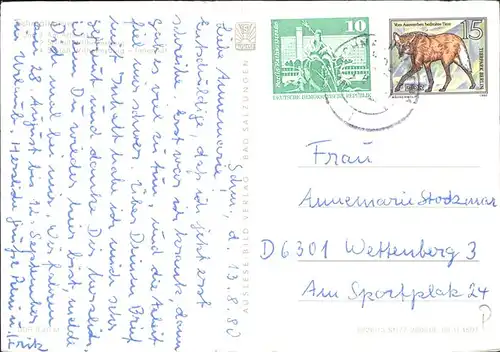 Schm., d. 13.8.80
Liebe Annemarie!
Entschuldige, daß ich jetzt erst
schreibe. Erst war ich krank, dann
gab es viel zu tun, und die Arbeit
fiel uns schwer. Über Deinen Brief
mit Inhalt habe ich mich sehr
gefreut und danke Dir herzlich.
Wenn Du wieder hier bist, melde
Dich mal bei uns. Wir fahren
am 28. August bis 12. September
in Urlaub. Herzliche Grüße
Fritz
AUSLESE-BILD-VERLAG BAD SALZUNGEN
10
DEUTSCHE DEMOKRATISCHE REPUBLIK
Vom Aussterben bedrohte Tiere
15
TIERPARK BERLIN
DDR
Frau
Annemarie Stockmar
D 6301 Wettenberg 3
Am Sportplatz 24